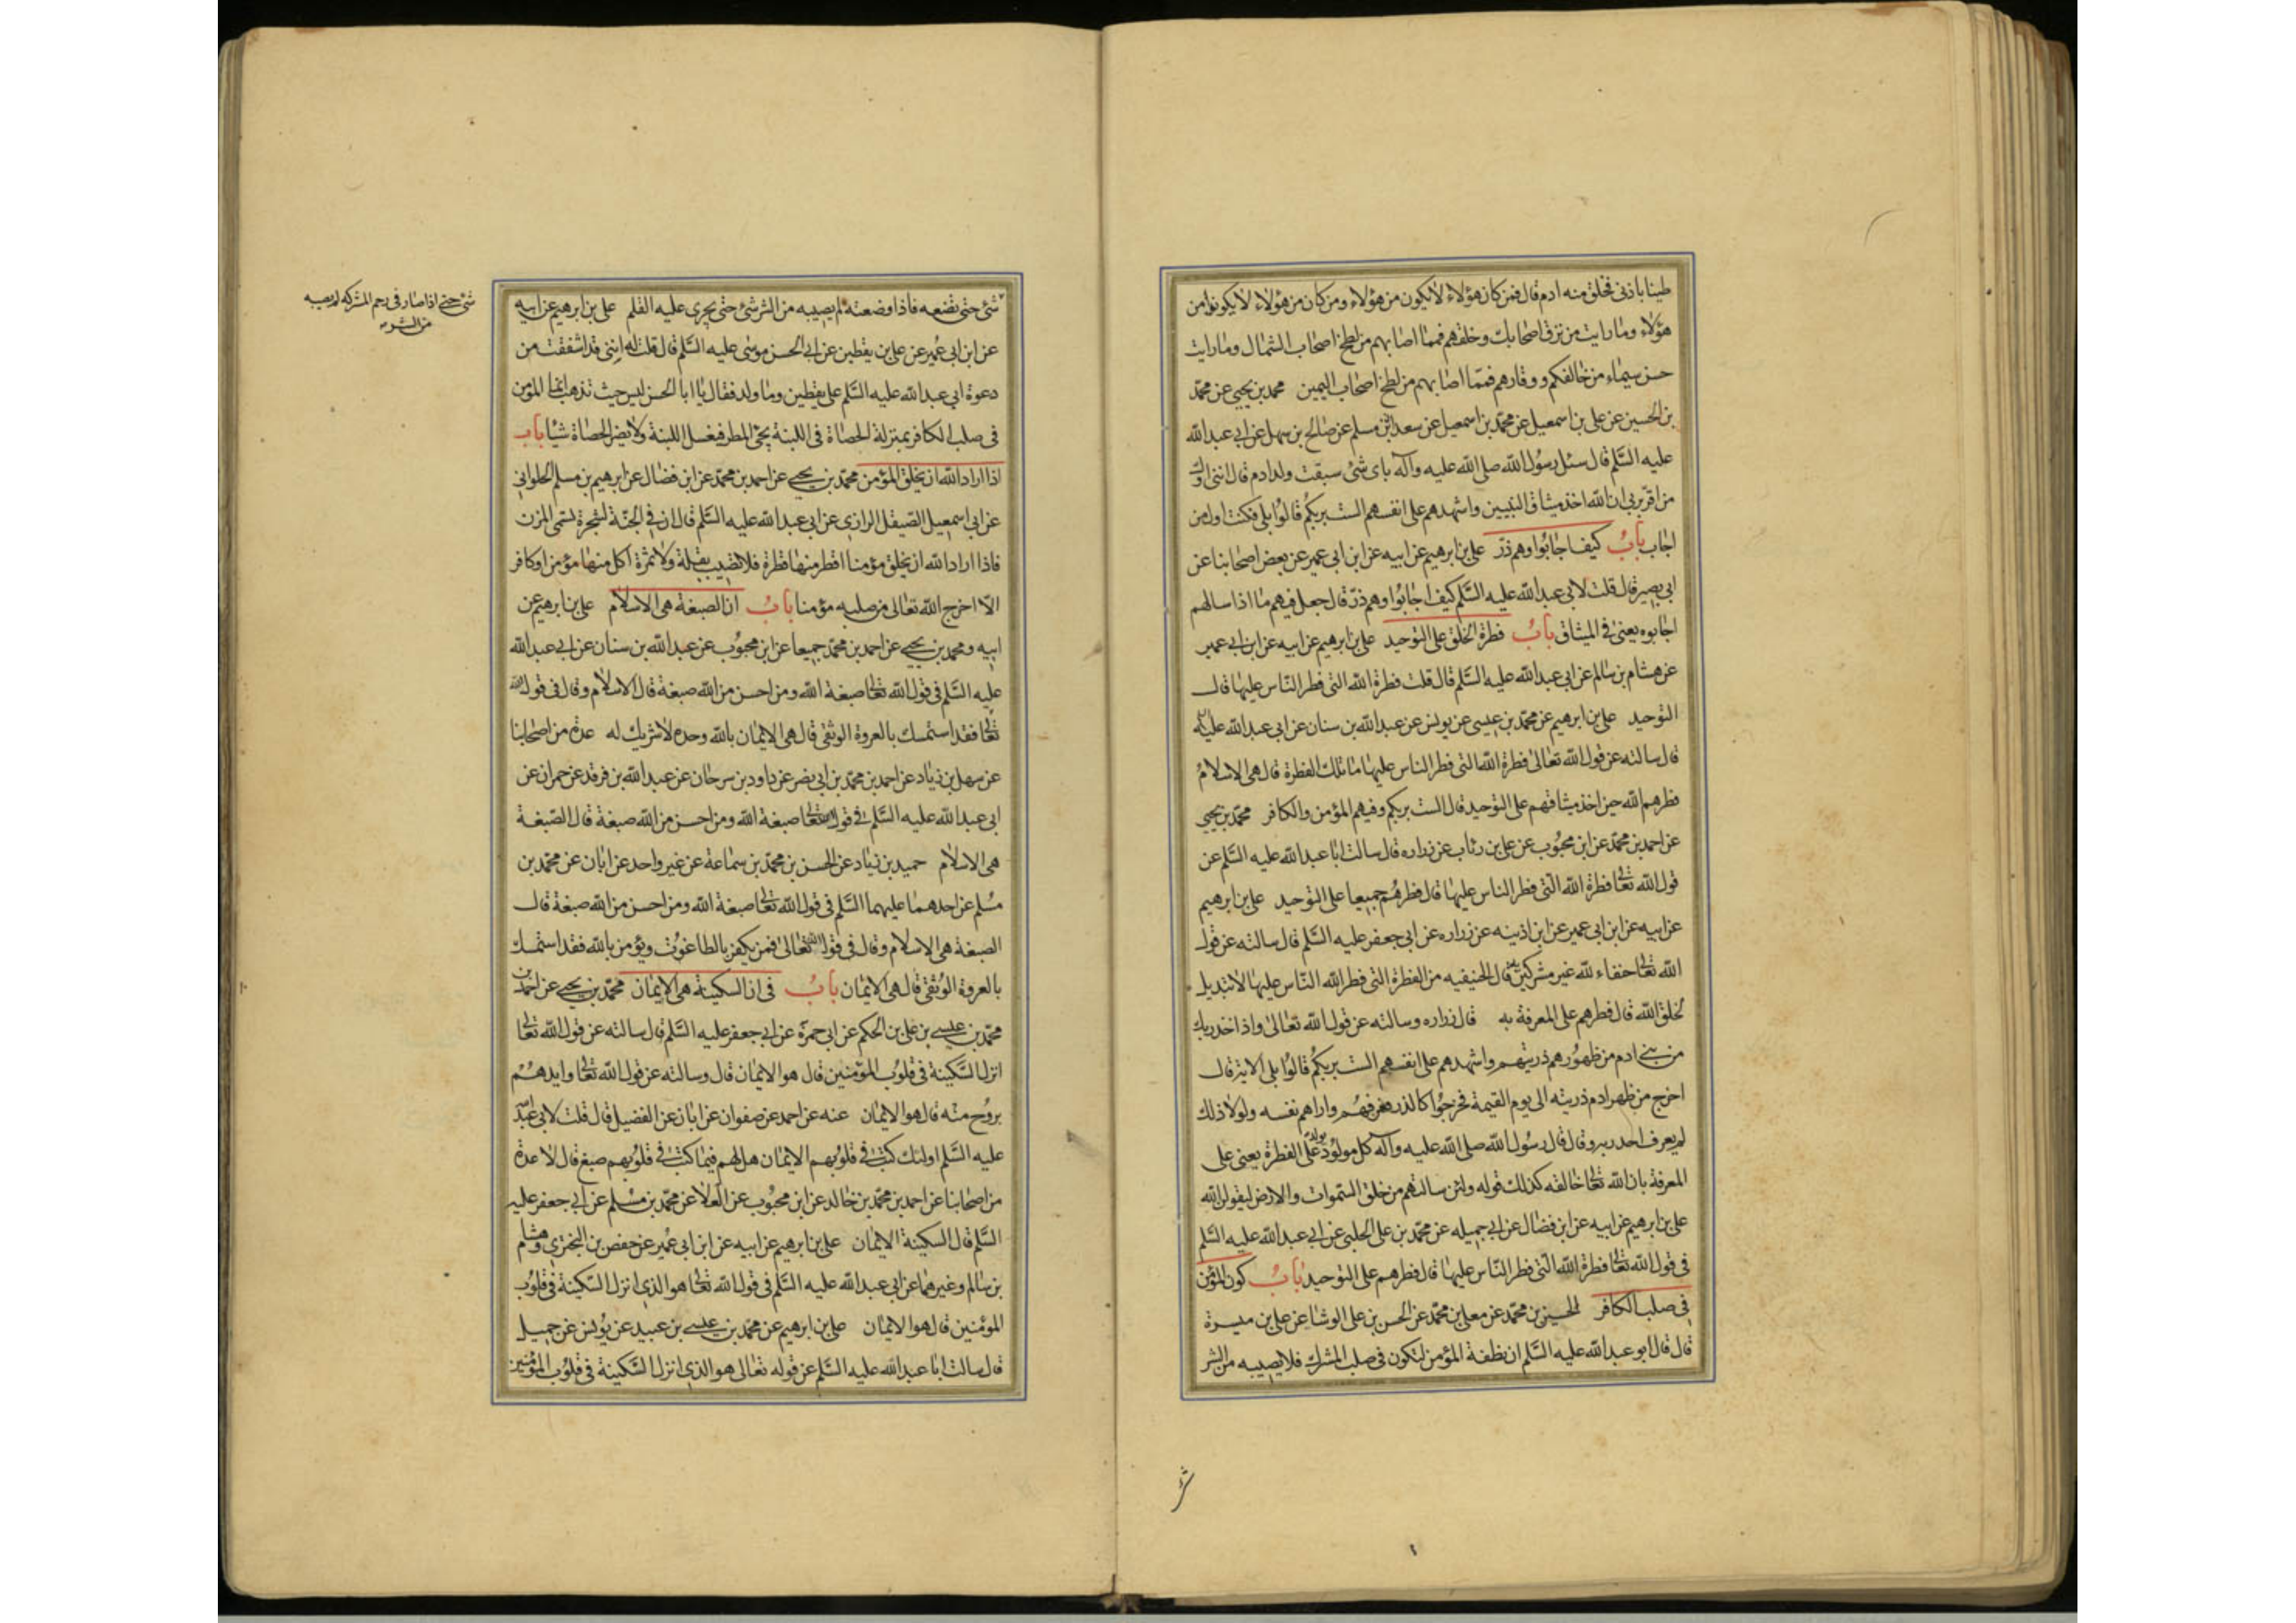 طينا باذنى فخلق منه ادم قال فمن كان من هؤلاء لا يكون من هؤلاء ومن كان من هؤلاء لا يكونوا من
هؤلاء وما رايت من نزق اصحابك وخلقهم فمما اصابهم من لطخ اصحاب الشمال وما رايت
حسن سيماء من خالفكم ووقارهم فمما اصابهم من لطخ اصحاب اليمين محمد بن يحيى عن محمد
بن الحسين عن على بن اسمعيل عن محمد بن اسمعيل عن سعدان بن مسلم عن صالح بن سهل عن ابى عبد الله
عليه السّلم قال سئل رسول الله صلى الله عليه وآله باى شئ سبقت ولد ادم قال اننى اول
من اقرّ بربى ان الله اخذ ميثاق النبيين واشهدهم على انفسهم الست بربكم قالوا بلى فكنت اول من
اجاب باب كيف اجابوا وهم ذرّ على بن ابرهيم عن ابيه عن ابن ابى عمير عن بعض اصحابنا عن
ابى بصير قال قلت لابى عبد الله عليه السّلم كيف اجابوا وهم ذرّ قال جعل فيهم ما اذا سالهم
اجابوه يعنى فى الميثاق باب فطرة الخلق على التوحيد على بن ابرهيم عن ابيه عن ابن ابى عمير
عن هشام بن سالم عن ابى عبد الله عليه السّلم قال قلت فطرة الله التى فطر النّاس عليها قال
التوحيد على بن ابرهيم عن محمّد بن عيسى عن يونس عن عبد الله بن سنان عن ابى عبد الله عليه السلم
قال سالته عن قول الله تعالى فطرة الله التى فطر الناس عليها ما تلك الفطرة قال هى الاسلام
فطرهم الله حين اخذ ميثاقهم على التوحيد قال الست بربكم وفيهم المؤمن والكافر محمّد بن يحيى
عن احمد بن محمّد عن ابن محبوب عن على بن رئاب عن زراره قال سالت ابا عبد الله عليه السّلم عن
قول الله تعالى فطرة الله الّتى فطر الناس عليها قال فطرهم جميعا على التوحيد على بن ابرهيم
عن ابيه عن ابن ابى عمير عن ابن اذينه عن زراره عن ابى جعفر عليه السّلم قال سالته عن قول
الله تعالى حنفاء لله غير مشركين به قال الحنيفيه من الفطرة التى فطر الله النّاس عليها لا تبديل
لخلق الله قال فطرهم على المعرفة به قال زراره وسالته عن قول الله تعالى واذ اخذ ربك
من بنى ادم من ظهورهم ذريتهم واشهدهم على انفسهم الست بربكم قالوا بلى الاية قال
اخرج من ظهر ادم ذريته الى يوم القيمة فخرجوا كالذر فعرفهم واراهم نفسه ولولا ذلك
لم يعرف احد ربه وقال قال رسول الله صلى الله عليه وآله كل مولود يولد على الفطرة يعنى على
المعرفة بان الله تعالى خالقه كذلك قوله ولئن سالتهم من خلق السّموات والارض ليقولن الله
على بن ابرهيم عن ابيه عن ابن فضال عن ابى جميله عن محمّد بن على الحلبى عن ابى عبد الله عليه السّلم
فى قول الله تعالى فطرة الله الّتى فطر النّاس عليها قال فطرهم على التوحيد باب كون المؤمن
فى صلب الكافر الحسين بن محمّد عن معلى بن محمّد عن الحسن بن على الوشا عن على بن ميسرة
قال قال ابو عبد الله عليه السّلم ان نطفة المؤمن لتكون فى صلب المشرك فلا يصيبه من الشر
شئ حتى اذا صار فى رحم المشركه لم يصبه
من الشر
شئ حتى تضعه فاذا وضعته لم يصيبه من الشر شئ حتى يجرى عليه القلم على بن ابرهيم عن ابيه
عن ابن ابى عمير عن على بن يقطين عن ابى الحسن موسى عليه السّلم قال قلت له اننى قد اشفقت من
دعوة ابى عبد الله عليه السّلم على يقطين وما ولد فقال يا ابا الحسن ليس حيث تذهب انما المؤمن
فى صلب الكافر بمنزلة الحصاة فى اللبنة يجئ المطر فيغسل اللبنة ولا يضر الحصاة شيئا باب
اذا اراد الله ان يخلق المؤمن محمّد بن يحيى عن احمد بن محمّد عن ابن فضال عن ابرهيم بن مسلم الحلوانى
عن ابى اسمعيل الصّيقل الرازى عن ابى عبد الله عليه السّلم قال ان فى الجنّة لشجرة تسمى المزن
فاذا اراد الله ان يخلق مؤمنا اقطر منها قطرة فلا تصيب بقلة ولا ثمرة اكل منها مؤمن او كافر
الّا اخرج الله تعالى من صلبه مؤمنا باب ان الصبغة هى الاسلام على بن ابرهيم عن
ابيه ومحمد بن يحيى عن احمد بن محمّد جميعا عن ابن محبوب عن عبد الله بن سنان عن ابى عبد الله
عليه السّلم فى قول الله تعالى صبغة الله ومن احسن من الله صبغة قال الاسلام وقال فى قول الله
تعالى فقد استمسك بالعروة الوثقى قال هى الايمان بالله وحده لا شريك له عدة من اصحابنا
عن سهل بن زياد عن احمد بن محمّد بن ابى نصر عن داود بن سرحان عن عبد الله بن فرقد عن حمران عن
ابى عبد الله عليه السّلم فى قول الله تعالى صبغة الله ومن احسن من الله صبغة قال الصّبغة
هى الاسلام حميد بن زياد عن الحسن بن محمّد بن سماعة عن غير واحد عن ابان عن محمّد بن
مسلم عن احدهما عليهما السّلم فى قول الله تعالى صبغة الله ومن احسن من الله صبغة قال
الصبغة هى الاسلام وقال فى قول الله تعالى فمن يكفر بالطاغوت ويؤمن بالله فقد استمسك
بالعروة الوثقى قال هى الايمان باب فى ان السكينة هى الايمان محمّد بن يحيى عن احمد بن
محمّد بن عيسى بن على بن الحكم عن ابى حمزة عن ابى جعفر عليه السّلم قال سالته عن قول الله تعالى
انزل السّكينة فى قلوب المؤمنين قال هو الايمان قال وسالته عن قول الله تعالى وايدهم
بروح منه قال هو الايمان عنه عن احمد عن صفوان عن ابان عن الفضيل قال قلت لابى عبد الله
عليه السّلم اولئك كتب فى قلوبهم الايمان هل لهم فيما كتب فى قلوبهم صبغ قال لا عدة
من اصحابنا عن احمد بن محمّد بن خالد عن ابن محبوب عن العلا عن محمّد بن مسلم عن ابى جعفر عليه
السّلم قال السكينة الايمان على بن ابرهيم عن ابيه عن ابن ابى عمير عن حفص بن البخترى وهشام
بن سالم وغيرهما عن ابى عبد الله عليه السّلم فى قول الله تعالى هو الذى انزل السّكينة فى قلوب
المؤمنين قال هو الايمان على بن ابرهيم عن محمّد بن عيسى بن عبيد عن يونس عن جميل
قال سالت ابا عبد الله عليه السّلم عن قوله تعالى هو الذى انزل السّكينة فى قلوب المؤمنين